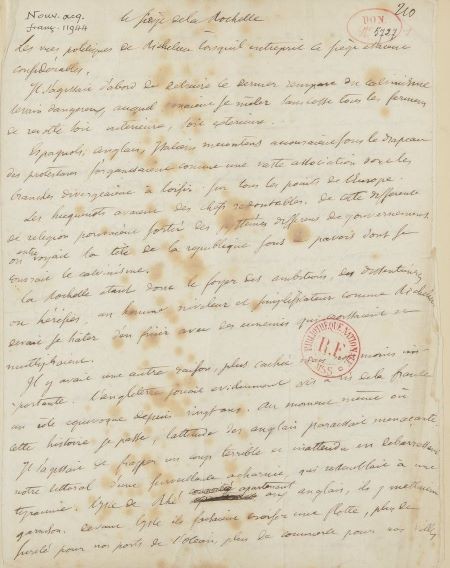 Nouv. acq.
franç. 11944
210
DON
5727
Le siège de la Rochelle
Les vues politiques de Richelieu lorsqu'il entreprit le siège étaient
considérables.
Il s'agissait d'abord de détruire le dernier rempart du calvinisme
levain dangereux, auquel venaient se mêler sans cesse tous les ferments
de révolte soit intérieure, soit extérieure.
Espagnols, anglais, italiens mécontents accouraient sous le drapeau
des protestans s'organisaient comme une vaste association dont les
branches divergeaient à loisir sur tous les points de l'Europe.
Les huguenots avaient des chefs redoutables. de cette différence
de religion pouvaient sortir des systèmes différens de gouvernement
on voyait la tête de la république sous pavois dont se
couvrait le calvinisme.
La Rochelle étant donc le foyer des ambitions, des dissentions
ou hérésies, un homme niveleur et simplificateur comme Richelieu
devait se hâter d'en finir avec des ennemis qui
multipliaient.
Il y avait une autre raison, plus cachée mais moins im-
portante. L'angleterre jouait évidemment vis à vis de la France
un rôle equivoque depuis vingt ans. Au moment même où
cette histoire se passe, l'attitude des anglais paraissait menaçante
Il s'agissait de frapper un coup terrible et inattendu en débarrassant
notre littoral d'une surveillance acharnée, qui ressemblait à une
tyrannie. L'isle de Rhé appartenant aux anglais, ils y mettraient
garnison. devant l'isle ils faisaient une flotte, plus de
sûreté pour nos ports de l'océan, plus de commerce pour nos villes
BIBLIOTHÈQUE NATIONALE
R.F.
MSS